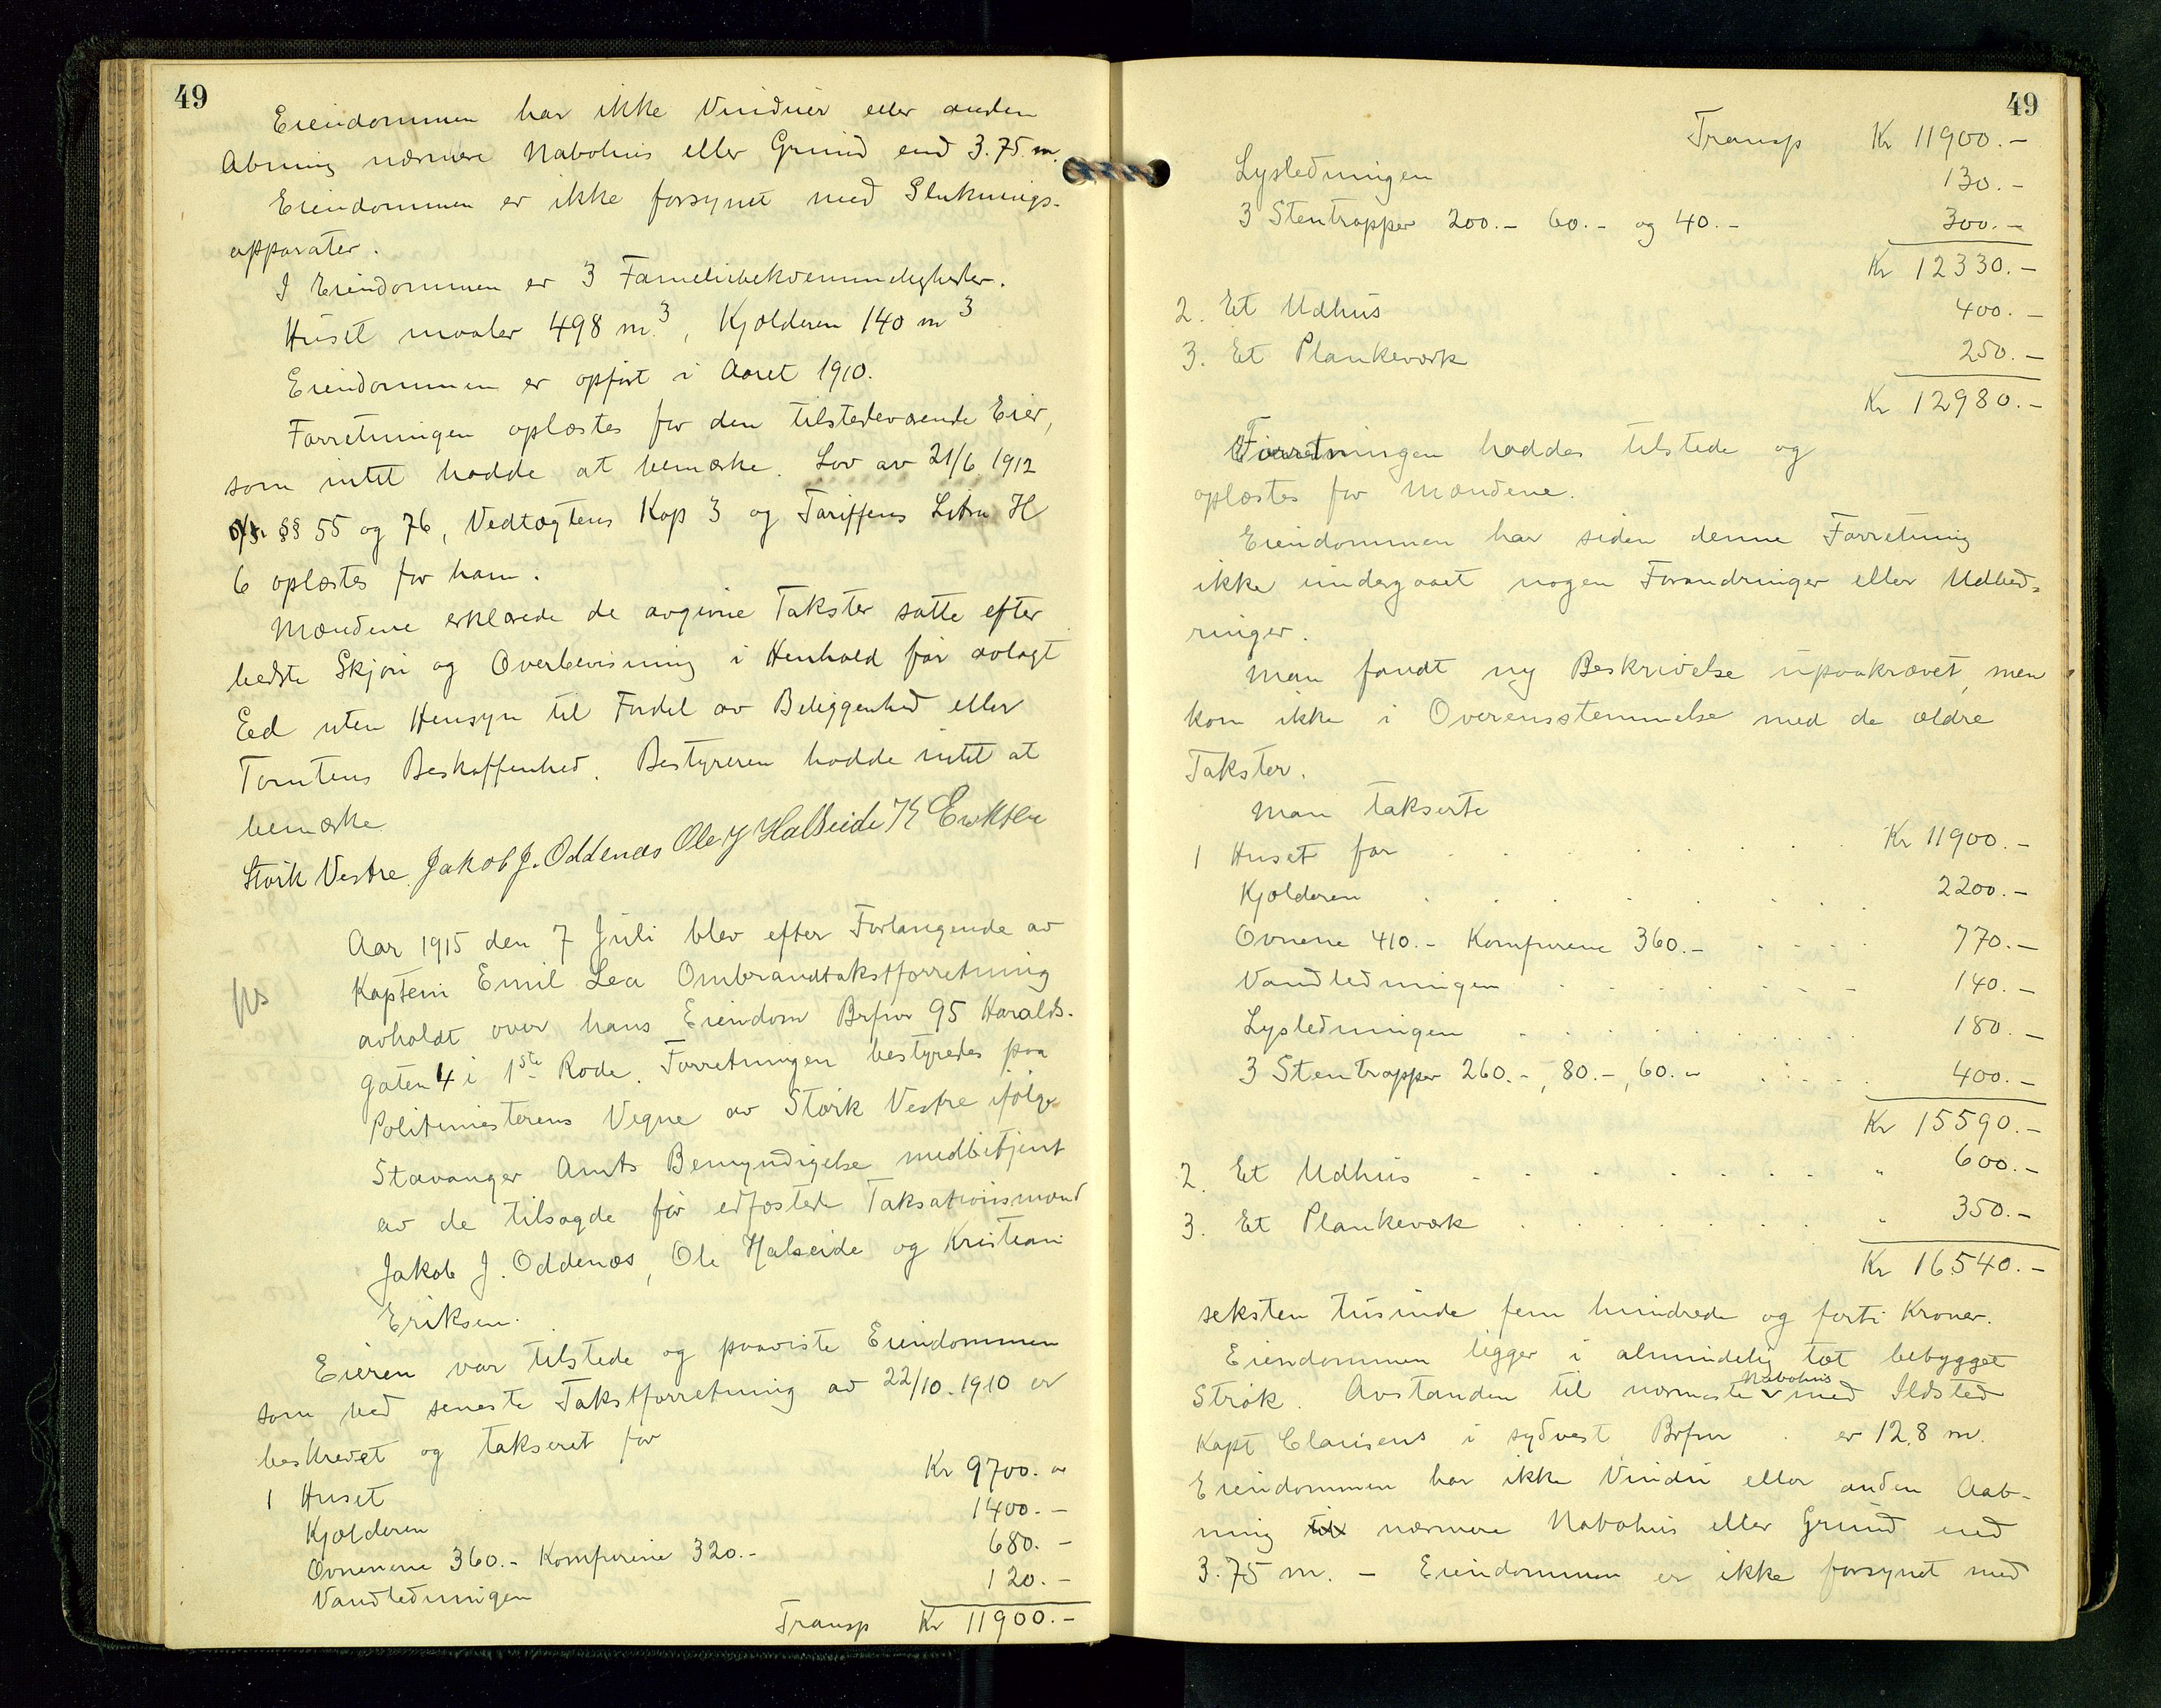 49
Eiendommen har ikke Vinduer eller anden
Abning nærmere Nabohus eller Grund end 3.75 m.
Eiendommen er ikke forsynet med Sluknings-
apparater.
I Eiendommen er 3 Familiebekvemmeligheter.
Huset maaler 498 m³, Kjælderen 140 m³
Eiendommen er opført i Aaret 1910.
Forretningen oplæstes for den tilstedeværende Eier,
som intet hadde at bemærke. Lov av 21/6 1912
§§ 55 og 76, Vedtægtens Kap 3 og Tariffens Litra H
6 oplæstes for ham.
Mændene erklærede de avgivne Takster satte efter
bedste Skjøn og Overbevisning i Henhold før avlagt
Eed uten Hensyn til Fordel av Beliggenhed eller
Tomtens Beskaffenhed. Bestyreren hadde intet at
bemærke
Størk Vestre. Jakob J. Oddenæs Ole J Halseide K Eriksen
Aar 1915 den 7 Juli blev efter Forlangende av
Kaptein Emil Lea Ombrandtakstforretning
avholdt over hans Eiendom Brfnr 95 Haralds-
gaten 4 i 1ste Rode. Forretningen bestyredes paa
Politimesterens Vegne av Størk Vestre ifølge
Stavanger Amts Bemyndigelse medbetjent
av de tilsagde før edfæstede Taksationsmænd
Jakob J. Oddenæs, Ole Halseide og Kristian
Eriksen.
Eieren var tilstede og paaviste Eiendommen
som ved seneste Takstforretning av 22/10.1910 er
beskrevet og takseret for
1 Huset Kr 9700.-
Kjælderen 1400.-
Ovnenene 360.- Komfurene 320.- 680.-
Vandledningen 120.-
Transp Kr 11900.-
49
Transp Kr 11900.-
Lysledningen 130.-
3 Stentrapper 200.- 60.- og 40.- 300.-
Kr 12330.-
2. Et Udhus 400.-
3. Et Plankeværk 250.-
Kr 12980.-
Forretningen haddes tilstede og
oplæstes for Mændene.
Eiendommen har siden denne Forretning
ikke undergaaet nogen Forandringer eller Udbed-
ringer.
Man fandt ny Beskrivelse upaakrævet, men
kom ikke i Overensstemmelse med de ældre
Takster.
Man takserte
1 Huset for Kr 11900.-
Kjælderen 2200.-
Ovnene 410.- Komfurene 360.- 770.-
Vandledningen 140.-
Lysledningen 180.-
3 Stentrapper 260.-, 80.-, 60.- 400.-
Kr 15590.-
2. Et Udhus " 600.-
3. Et Plankeværk " 350.-
Kr 16540.-
seksten tusinde fem hundrede og forti Kroner.
Eiendommen ligger i almindelig tæt bebygget
Strøk. Avstanden til nærmeste Nabohus med Ildsted
Kapt Clausens i sydvest Brfnr . er 12.8 m.
Eiendommen har ikke Vindu eller anden Aab-
ning til nærmere Nabohus eller Grund end
3.75 m. - Eiendommen er ikke forsynet med